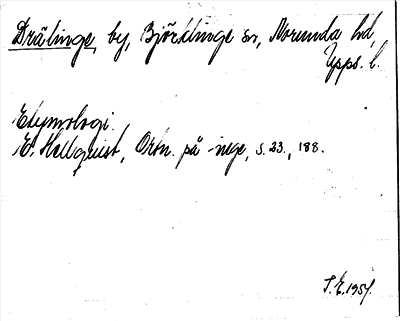 Drälinge, by, Björklinge sn, Norunda hd,
Upps. l.
Etymologi.
E. Hellquist, Ortn. på -inge, s. 23., 188.
S.E. 1957.